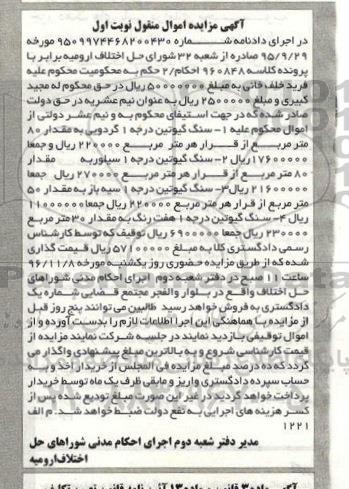 آگهی مزایده اموال منقول نوبت اول
در اجرای دادنامه شـــــماره ۹۵۰۹۹۷۴۴۶۸۲۰۰۴۳۰ مورخه
۹۵/۹/۲۹ صادره از شعبه ۳۲ شورای حل اختلاف ارومیه برابر با
پرونده کلاسه ۹۶۰۸۴۸ احکام/۲ حکم به محکومیت محکوم علیه
فرید خلف خانی به مبلغ ۵۰۰۰۰۰۰۰ ریال در حق محکوم له مجید
کبیری و مبلغ ۲۵۰۰۰۰۰ ریال به عنوان نیم عشریه در حق دولت
صادر شده که در جهت استیفای محکوم به و نیم عشر دولتی از
اموال محکوم علیه ۱- سنگ گیوتین درجه ۱ گردویی به مقدار ۸۰
متر مربـــع از قـــرار هر متر مربـــع ۲۲۰۰۰۰ ریال و جمعا
۱۷۶۰۰۰۰۰ ریال ۲- سنگ گیوتین درجه ۱ سیلور به مقدار
۸۰ متر مربـع از قـــرار هر متر مربـع ۲۷۰۰۰۰ ریال جمعا
۲۱۶۰۰۰۰۰ ریال ۳- سنگ گیوتین درجه ۱ سیه باز به مقدار ۵۰
متر مربع از قرار هر متر مربع ۲۲۰۰۰۰ ریال جمعا ۱۱۰۰۰۰۰۰
ریال ۴- سنگ گیوتین درجه ۱ هفت رنگ به مقدار ۳۰ متر مربع
۲۳۰۰۰۰ ریال جمعا ۶۹۰۰۰۰۰ ریال توقیف که توسط کارشناس
رسمی دادگستری کلا به مبلغ ۵۷۱۰۰۰۰۰ ریال قیمت گذاری
شده که از طریق مزایده حضوری روز یکشنبه مورخه ۹۶/۱۱/۸
ساعت ۱۱ صبح در دفتر شعبه دوم اجرای احکام مدنی شوراهای
حل اختلاف واقع در بلوار والفجر مجتمع قضایی شماره یک
دادگستری به فروش خواهد رسید طالبین می توانند پنج روز قبل
از مزایده با هماهنگی این اجرا اطلاعات لازم را بدست آورده و از
اموال توقیفی بازدید نمایند در جلسه شرکت نمایند مزایده از
قیمت کارشناسی شروع و به بالاترین مبلغ پیشنهادی واگذار می
گردد که ده درصد مبلغ مزایده فی المجلس از خریدار اخذ و به
حساب سپرده دادگستری واریز و مابقی ظرف یک ماه توسط خریدار
پرداخت خواهد گردید در غیر این صورت مبلغ تودیع شده پس از
کسر هزینه های اجرایی به نفع دولت ضبط خواهد شد. م الف
۱۲۲۱
مدیر دفتر شعبه دوم اجرای احکام مدنی شوراهای حل
اختلاف ارومیه